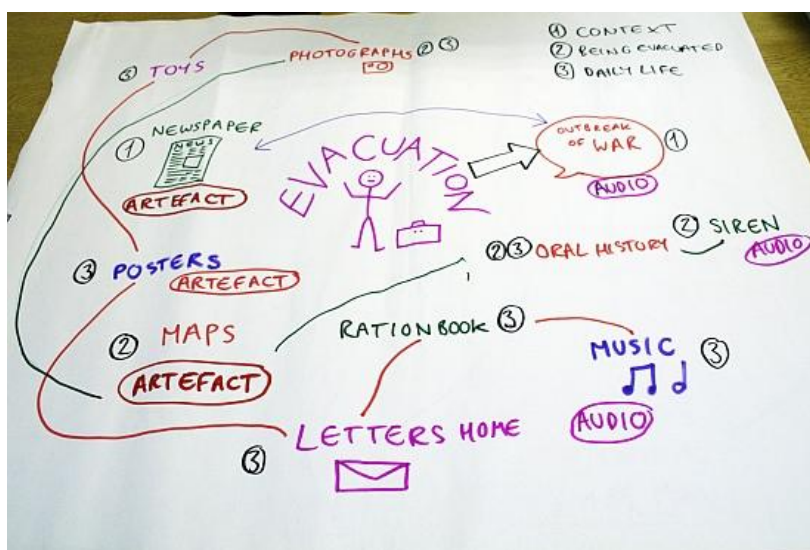 ① CONTEXT
② BEING EVACUATED
③ DAILY LIFE
③ TOYS
PHOTOGRAPHS ② ③
① NEWSPAPER
NEWS
ARTEFACT
EVACUATION
OUTBREAK
OF WAR
①
AUDIO
③ POSTERS
ARTEFACT
②③ ORAL HISTORY
② SIREN
AUDIO
② MAPS
ARTEFACT
RATIONBOOK ③
MUSIC ③
AUDIO
③ LETTERS HOME